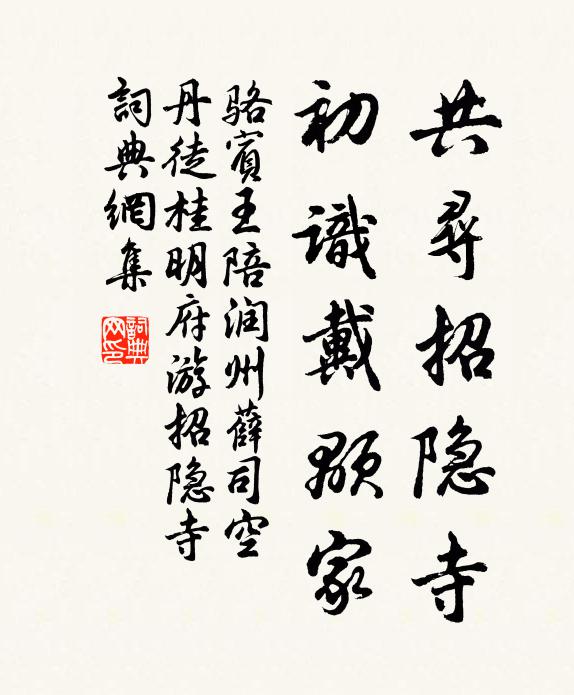 共尋招隐寺
初識戴顒家
骆賓王陪润州薛司空
丹徒桂明府游招隐寺
詞典網集
詞典网印